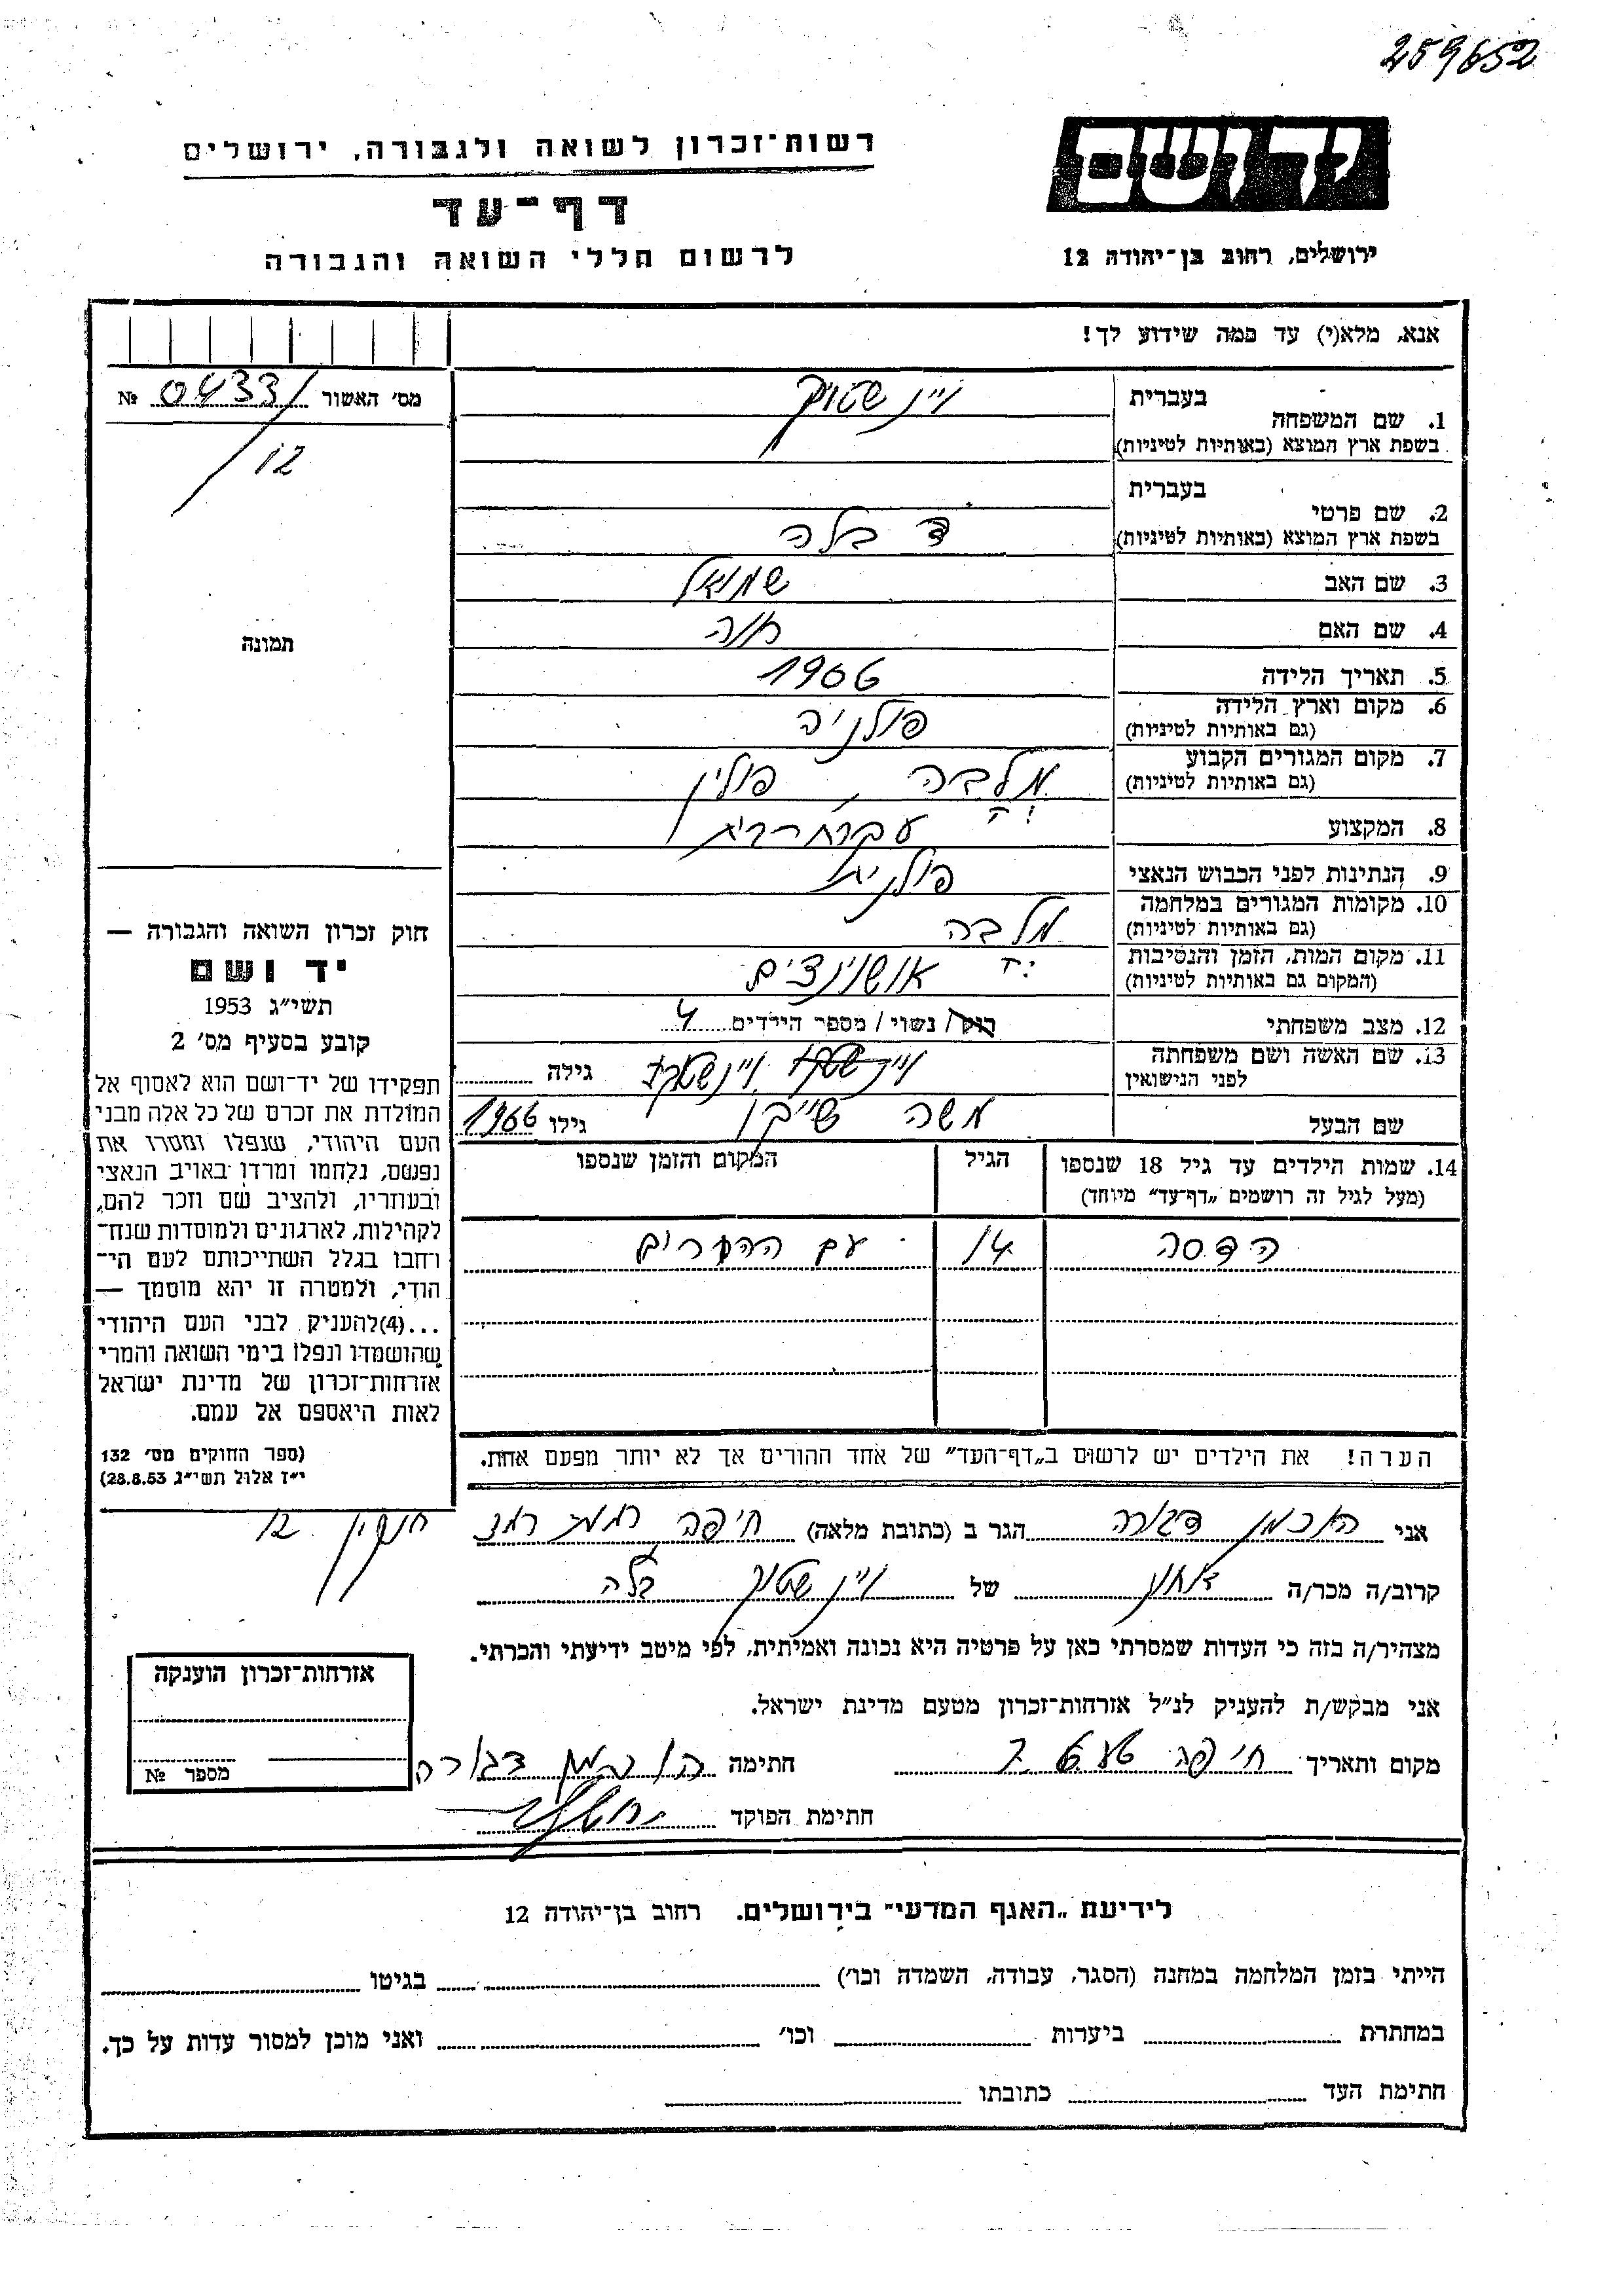 259652
יד ושם
ירושלים, רחוב בן־יהודה 12
רשות־זכרון לשואה ולגבורה, ירושלים
דף־עד
לרשום חללי השואה והגבורה
אנא, מלא(י) עד כמה שידוע לך!
מס׳ האשור 0433 №
12
תמונה
1. שם המשפחה
בעברית
ויינשטוק
בשפת ארץ המוצא (באותיות לטיניות)
2. שם פרטי
בעברית
בשפת ארץ המוצא (באותיות לטיניות)
בלה
3. שם האב שמואל
4. שם האם חנה
5. תאריך הלידה 1906
6. מקום וארץ הלידה
(גם באותיות לטיניות)
פולניה
7. מקום המגורים הקבוע
(גם באותיות לטיניות)
פולין
8. המקצוע
9. הנתינות לפני הכבוש הנאצי פולנית
10. מקומות המגורים במלחמה
(גם באותיות לטיניות)
11. מקום המות, הזמן והנסיבות
(המקום גם באותיות לטיניות)
אושוינצים
12. מצב משפחתי רוק/ נשוי/ מספר הילדים 4
13. שם האשה ושם משפחתה
לפני הנישואין
גילה
שם הבעל משה גילו 1966
14. שמות הילדים עד גיל 18 שנספו
(מעל לגיל זה רושמים „דף־עד״ מיוחד)
הגיל
המקום והזמן שנספו
הדסה 14 עם ההורים
הערה! את הילדים יש לרשום ב„דף־העד״ של אחד ההורים אך לא יותר מפעם אחת.
חוק זכרון השואה והגבורה —
יד ושם
תשי״ג 1953
קובע בסעיף מס׳ 2
תפקידו של יד־ושם הוא לאסוף אל
המולדת את זכרם של כל אלה מבני
העם היהודי, שנפלו ומסרו את
נפשם, נלחמו ומרדו באויב הנאצי
ובעוזריו, ולהציב שם וזכר להם,
לקהילות, לארגונים ולמוסדות שנח־
רחבו בגלל השתייכותם לעם הי־
הודי, ולמטרה זו יהא מוסמך —
...(4)להעניק לבני העם היהודי
שהושמדו ונפלו בימי השואה והמרי
אזרחות־זכרון של מדינת ישראל
לאות היאספם אל עמם.
(ספר החוקים מס׳ 132
י״ז אלול תשי״ג 28.8.53)
אני הוכמן דבורה הגר ב (כתובת מלאה) חיפה רמת רמז חנקין 12
קרוב/ה מכר/ה של ויינשטוק בלה
מצהיר/ה בזה כי העדות שמסרתי כאן על פרטיה היא נכונה ואמיתית, לפי מיטב ידיעתי והכרתי.
אני מבקש/ת להעניק לנ״ל אזרחות־זכרון מטעם מדינת ישראל.
מקום ותאריך חיפה חתימה הוכמן דבורה
חתימת הפוקד
אזרחות־זכרון הוענקה
מספר №
לידיעת „האגף המדעי״ בירושלים. רחוב בן־יהודה 12
הייתי בזמן המלחמה במחנה (הסגר, עבודה, השמדה וכו׳) בגיטו
במחתרת ביערות וכו׳ ואני מוכן למסור עדות על כך.
חתימת העד כתובתו